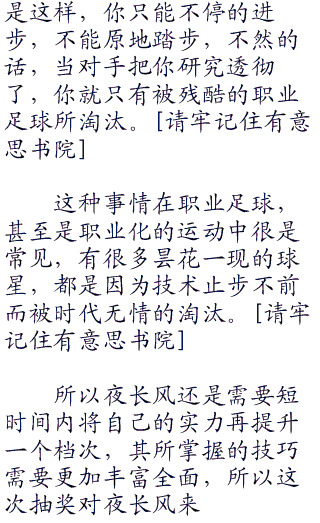 是这样，你只能不停的进
步，不能原地踏步，不然的
话，当对手把你研究透彻
了，你就只有被残酷的职业
足球所淘汰。[请牢记住有意
思书院]
这种事情在职业足球，
甚至是职业化的运动中很是
常见，有很多昙花一现的球
星，都是因为技术止步不前
而被时代无情的淘汰。[请牢
记住有意思书院]
所以夜长风还是需要短
时间内将自己的实力再提升
一个档次，其所掌握的技巧
需要更加丰富全面，所以这
次抽奖对夜长风来